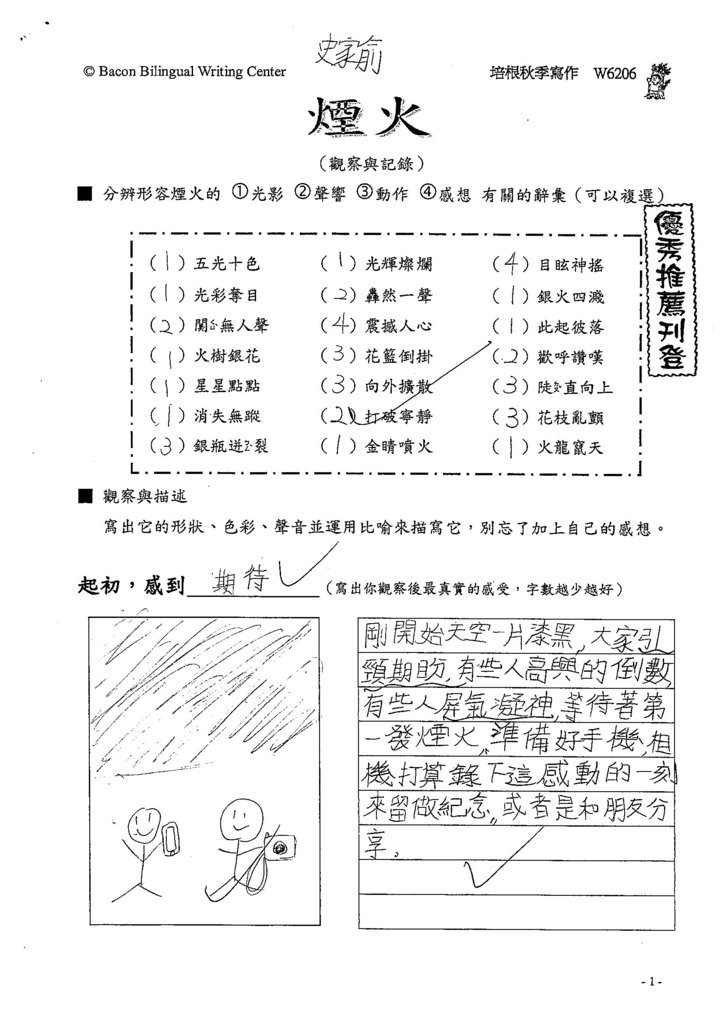 史家俞
© Bacon Bilingual Writing Center
培根秋季寫作 W6206
煙火
(觀察與記錄)
■ 分辨形容煙火的 ①光影 ②聲響 ③動作 ④感想 有關的辭彙(可以複選)
優秀推薦刊登
(1)五光十色 (1)光輝燦爛 (4)目眩神搖
(1)光彩奪目 (2)轟然一聲 (1)銀火四濺
(2)闃無人聲 (4)震撼人心 (1)此起彼落
(1)火樹銀花 (3)花籃倒掛 (2)歡呼讚嘆
(1)星星點點 (3)向外擴散 (3)陡直向上
(1)消失無蹤 (2)打破寧靜 (3)花枝亂顫
(3)銀瓶迸裂 (1)金睛噴火 (1)火龍竄天
■ 觀察與描述
寫出它的形狀、色彩、聲音並運用比喻來描寫它,別忘了加上自己的感想。
起初,感到 期待 (寫出你觀察後最真實的感受,字數越少越好)
剛開始天空一片漆黑,大家引
頸期盼,有些人高興的倒數,
有些人屏氣凝神,等待著第
一發煙火,準備好手機,相
機打算錄下這感動的一刻
來留做紀念,或者是和朋友分
享。
- 1 -